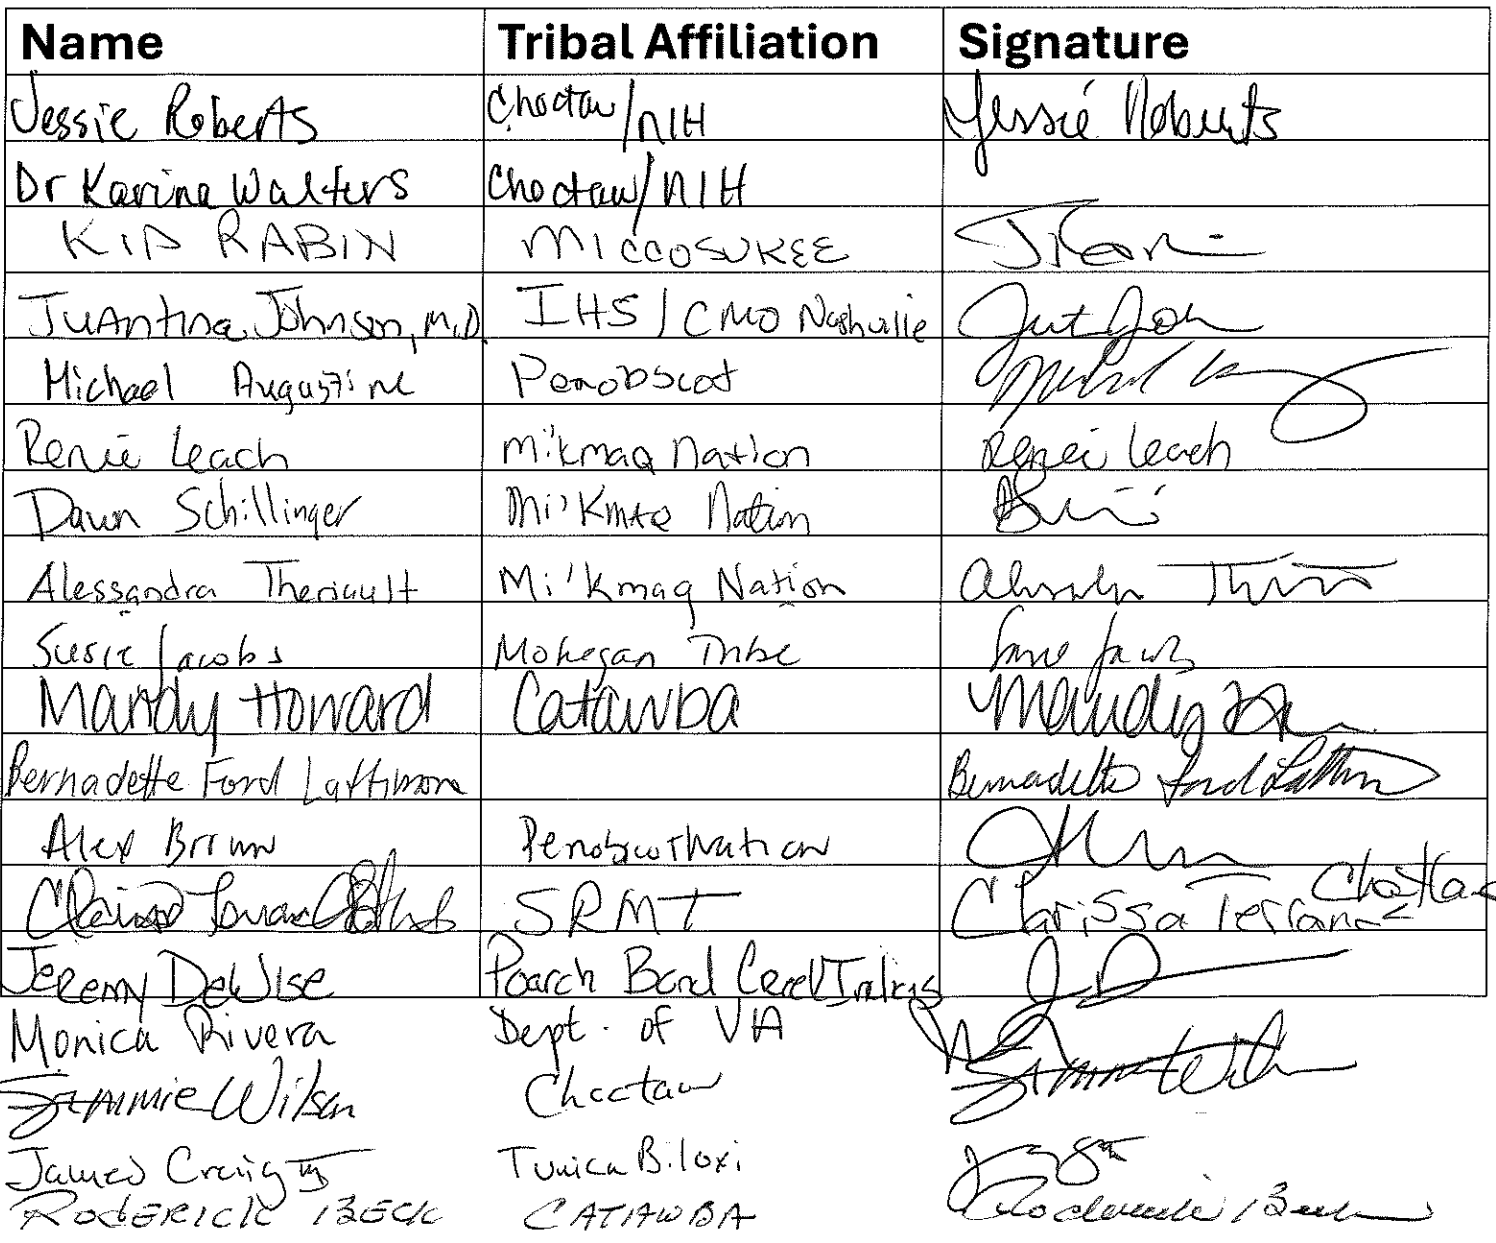 Name Tribal Affiliation Signature
Jessie Roberts Choctaw/NIH Jessie Roberts
Dr Karina Walters Choctaw/NIH
KIP RABIN MICCOSUKEE
Juantina Johnson, M.D. IHS / CMO Nashville
Michael Augustine Penobscot
Renee Leach Mi'kmaq Nation Renee Leach
Dawn Schillinger Mi'Kmaq Nation
Alessandra Theriault Mi'kmaq Nation
Susie Jacobs Mohegan Tribe Susie Jacobs
Mandy Howard Catawba Mandy
Bernadette Ford Lattimore Bernadette Ford
Alex Brown Penobscot Nation
SRMT Clarissa Terrance
Jeremy DeWise Poarch Band Creek Indians
Monica Rivera Dept. of VA
Sammie Wilson Choctaw
James Craig Tunica Biloxi
RODERICK BECK CATAWBA Roderick Beck